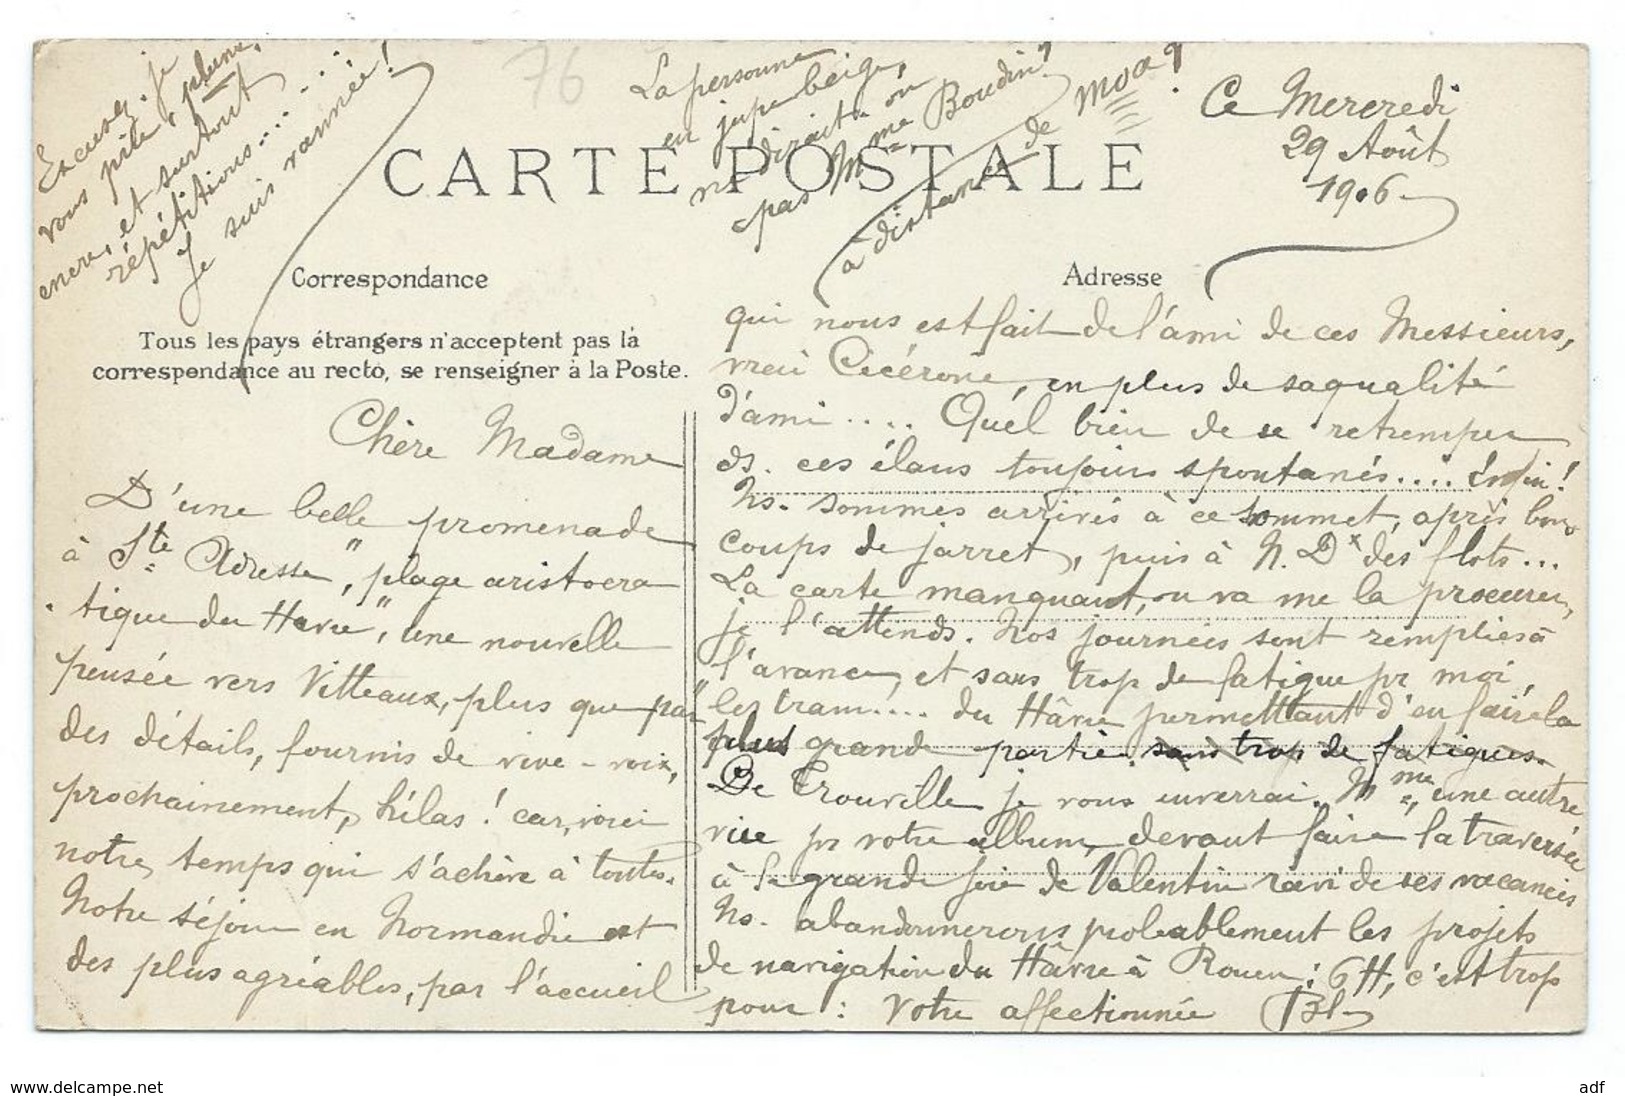 Excusez-je
vous prie, plume,
encre, et surtout
répétitions........
Je suis vannée!
76
La personne
en jupe beige,
ne dirait-on
pas Mme Boudin?
à distance de moa?
Ce Mercredi
29 Août
1906
CARTE POSTALE
Correspondance
Adresse
Tous les pays étrangers n'acceptent pas la
correspondance au recto, se renseigner à la Poste.
Chère Madame
D'une belle promenade
à Ste Adresse", plage aristocra
tique du Havre", une nouvelle
pensée vers Vitteaux, plus que par
des détails, fournis de vive-voix,
prochainement, hélas! car, voici
notre temps qui s'achève à toutes.
Notre séjour en Normandie est
des plus agréables, par l'accueil
qui nous est fait de l'ami de ces Messieurs,
vrai Cicérone, en plus de sa qualité
d'ami.... Quel bien de se retremper
ds. ces élans toujours spontanés.... Enfin!
Ns. sommes arrivés à ce sommet, après bons
coups de jarret, puis à N. De des flots...
La carte manquant, on va me la procurer,
je l'attends. Nos journées sont remplies à
l'avance, et sans trop de fatigue pr moi,
les tram.... du Hâvre permettant d'en faire la
plus grande partie. sans trop de fatigues.
De Trouville je vous enverrai. Mme, une autre
vue pr votre album, devant faire la traversée
à la grande joie de Valentin ravi de ses vacances
Ns. abandonnerons probablement les projets
de navigation du Hâvre à Rouen: 6 H, c'est trop
pour: Votre affectionnée Bl.
www.delcampe.net
adf